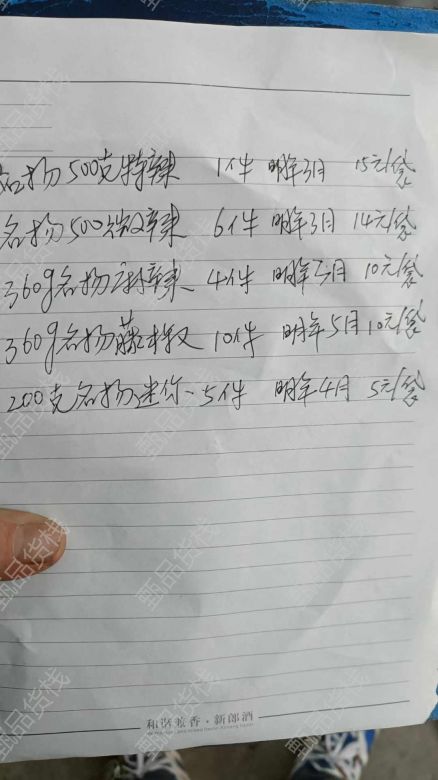 名扬500克特辣 1件 明年3月 15元/袋
名扬500克微辣 6件 明年3月 14元/袋
360g名扬麻辣 4件 明年3月 10元/袋
360g名扬藤椒 10件 明年5月 10元/袋
200克名扬迷你 5件 明年4月 5元/袋
和谐兼香·新郎酒
甄品货栈